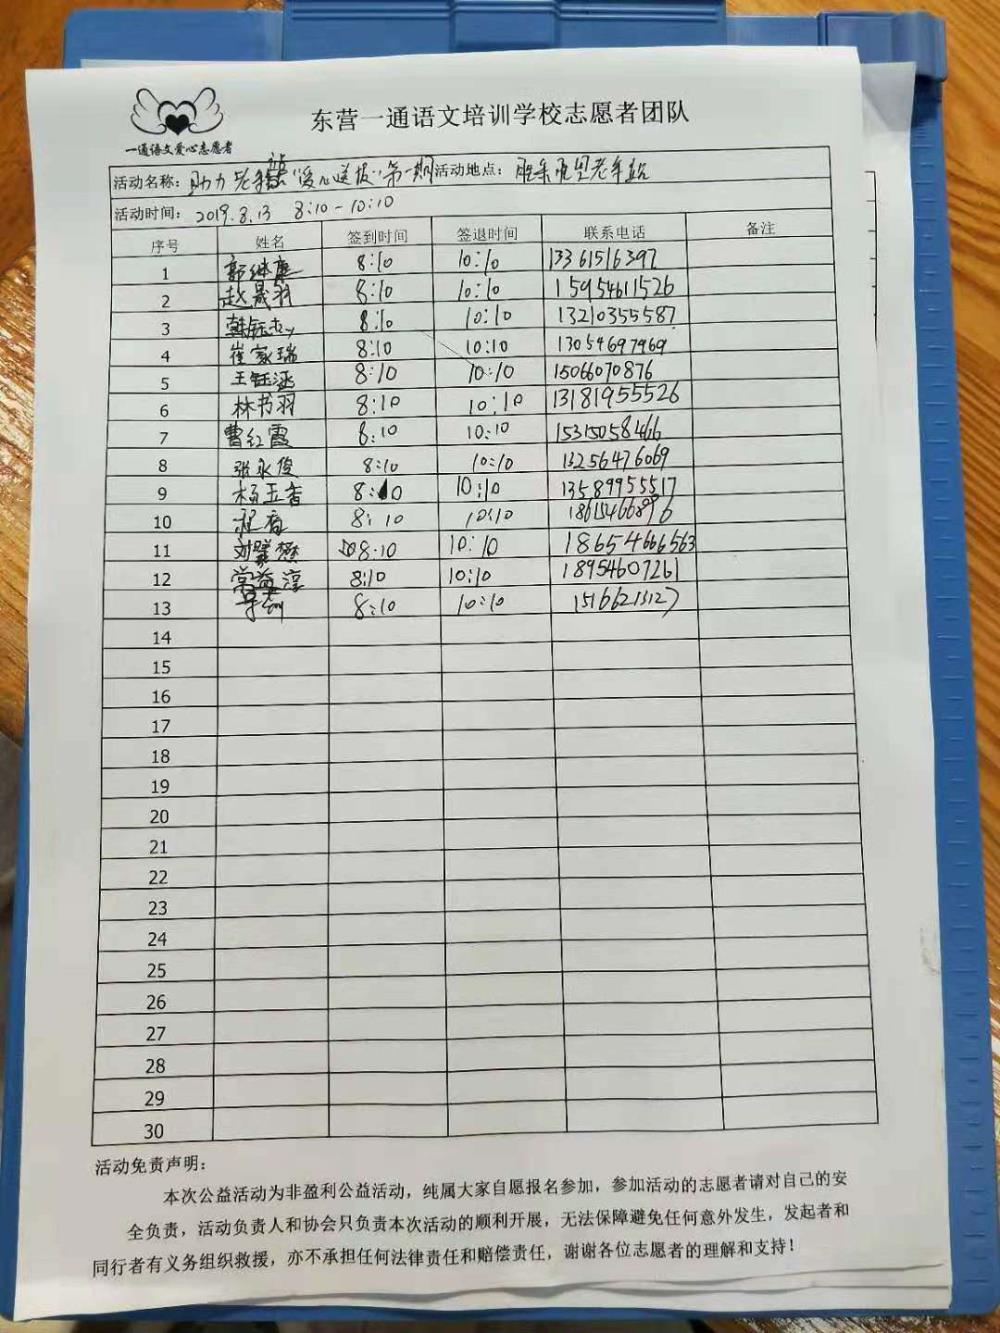 东营一通语文培训学校志愿者团队
一通语文爱心志愿者
活动名称：助力 "爱心送 "第一期 活动地点： 老年站
活动时间：2019.8.13 8:10-10:10
序号 姓名 签到时间 签退时间 联系电话 备注
1 郭继 8:10 10:10 13361516397
2 赵晟羽 8:10 10:10 15954611526
3 韩钰 8:10 10:10 13210355587
4 崔家瑞 8:10 10:10 13054697969
5 王钰涵 8:10 10:10 15066070876
6 林书羽 8:10 10:10 13181955526
7 曹红霞 8:10 10:10 15315058466
8 张永俊 8:10 10:10 13256476069
9 杨玉香 8:10 10:10 13589955517
10 8:10 10:10 18615466896
11 刘 懋 8:10 10:10 18654666563
12 常益淳 8:10 10:10 18954607261
13 8:10 10:10 15166213127
14
15
16
17
18
19
20
21
22
23
24
25
26
27
28
29
30
活动免责声明：
本次公益活动为非盈利公益活动，纯属大家自愿报名参加，参加活动的志愿者请对自己的安
全负责，活动负责人和协会只负责本次活动的顺利开展，无法保障避免任何意外发生，发起者和
同行者有义务组织救援，亦不承担任何法律责任和赔偿责任，谢谢各位志愿者的理解和支持！